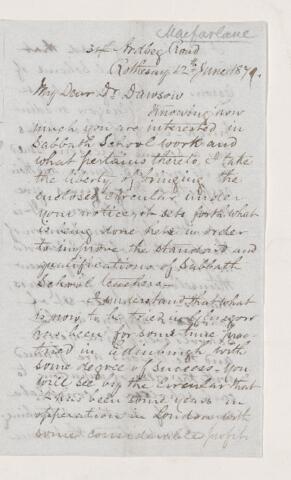 Macfarlane
34 Ardbeg Road
Rothesay 12th June 1879.
My Dear Dr Dawson
Knowing how
much you are interested in
Sabbath School work and
what pertains thereto, I take
the liberty of bringing the
enclosed circular under
your notice, it sets forth what
is being done here in order
to improve the standard and
qualifications of Sabbath
School teachers.
I understand that what
is now to be tried in Glasgow
has been for some time prac
tised in Edinburgh with
some degree of success. You
will see by the Circular that
it has been some years in
operation in London with
some considerable profit